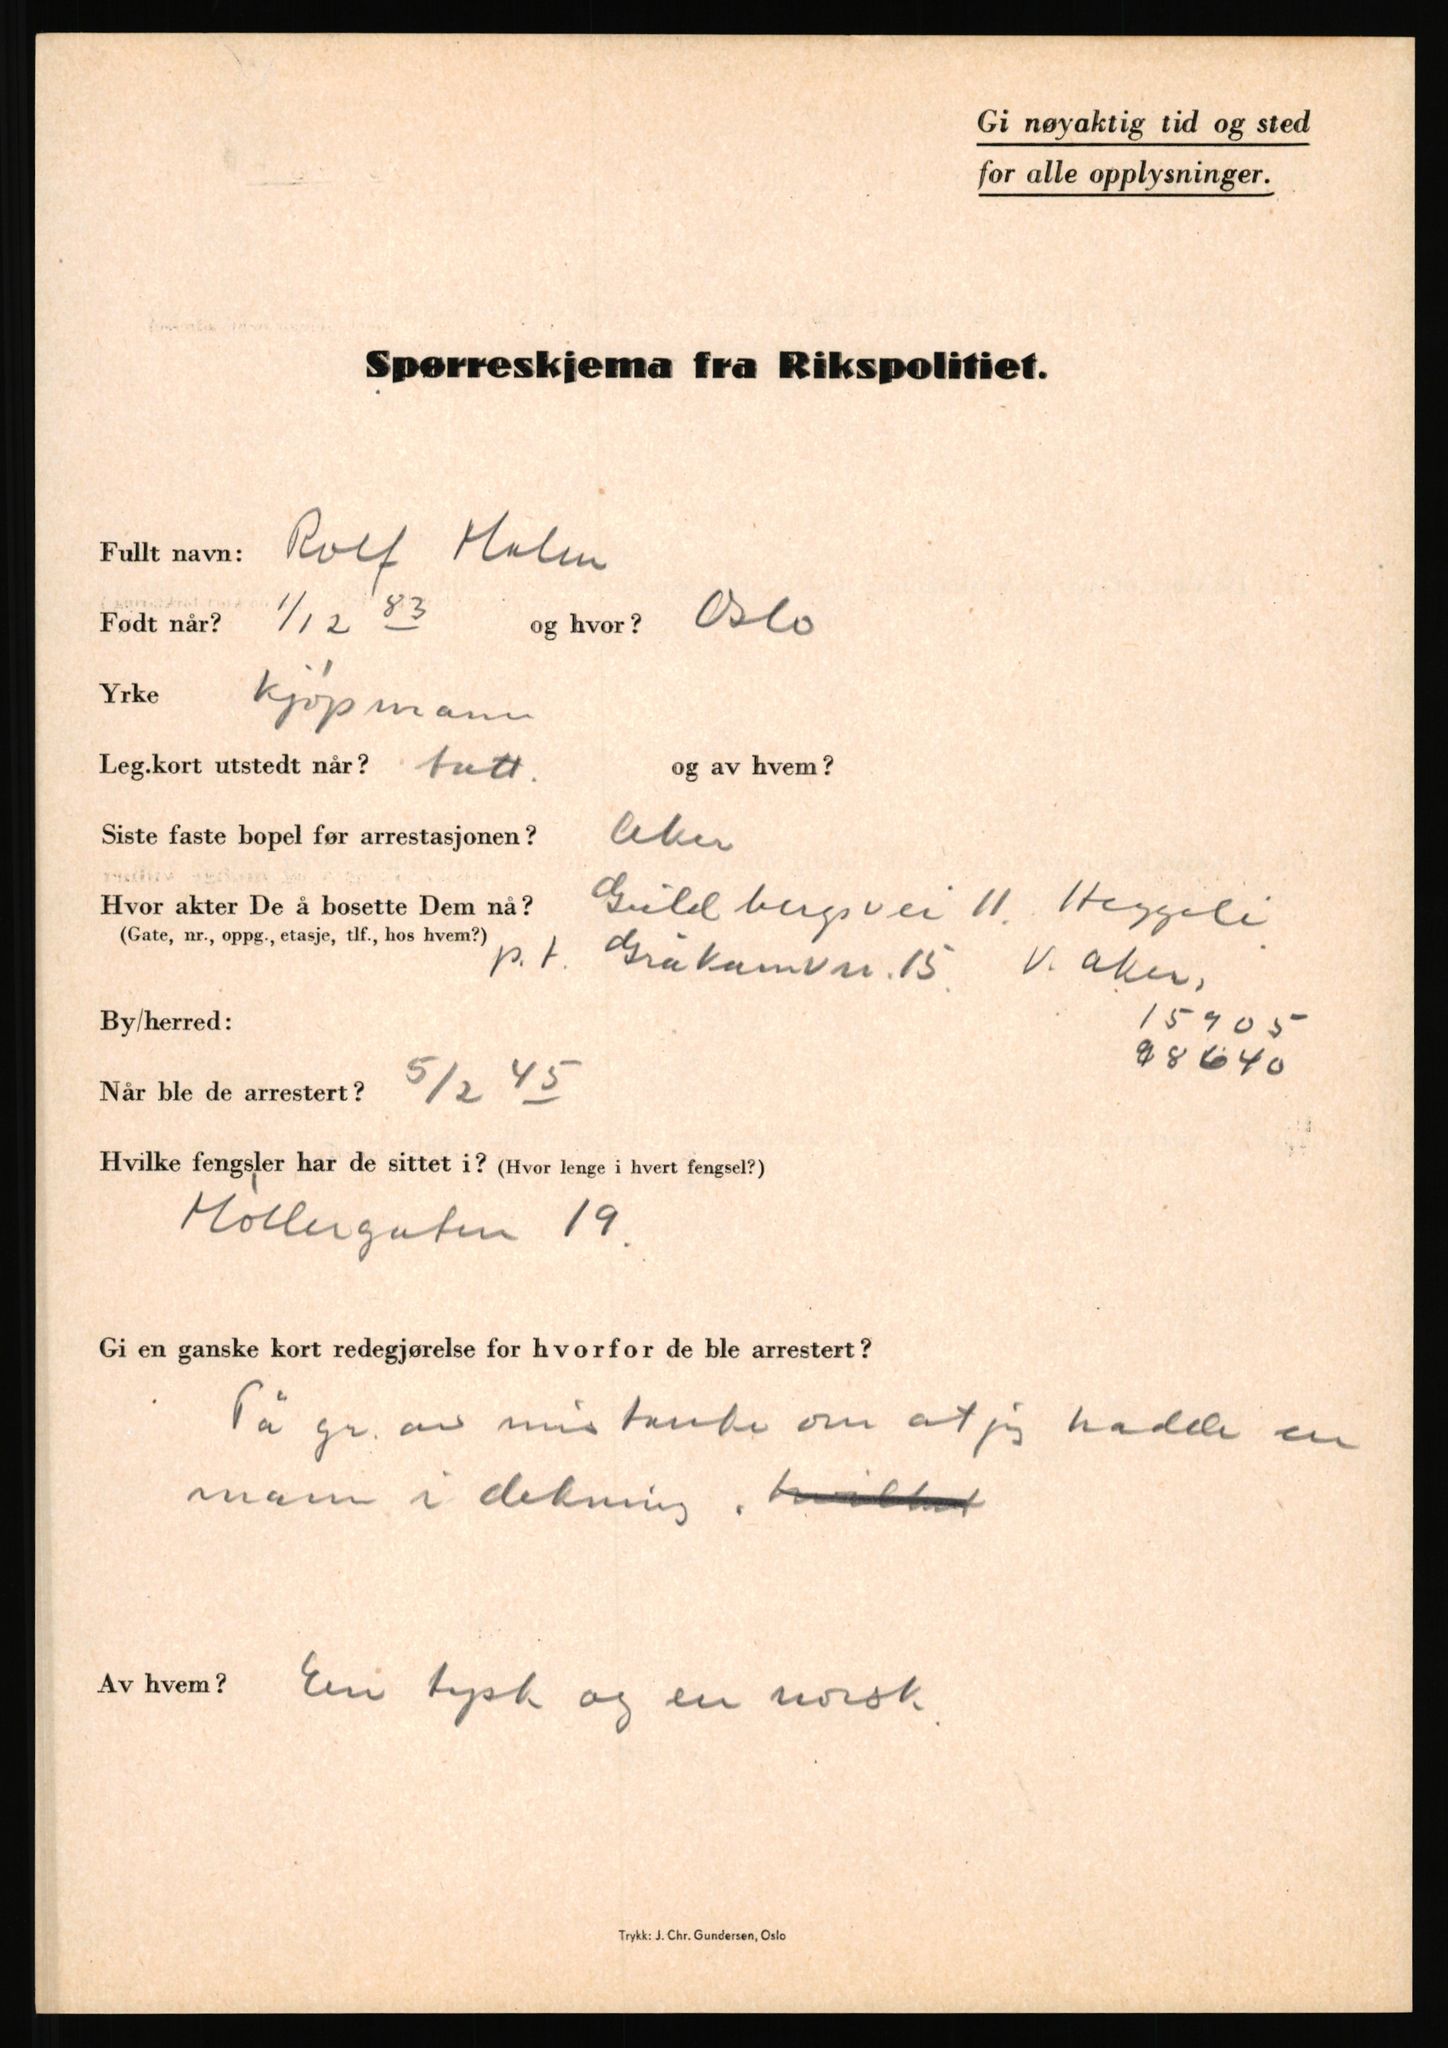 Gi nøyaktig tid og sted
for alle opplysninger.
Spørreskjema fra Rikspolitiet.
Fullt navn: Rolf Holm
Født når? 1/12 83 og hvor? Oslo
Yrke Kjøpmann
Leg.kort utstedt når? tatt. og av hvem?
Siste faste bopel før arrestasjonen? Aker
Hvor akter De å bosette Dem nå? Guldbergsvei 11. Heggeli
(Gate, nr., oppg., etasje, tlf., hos hvem?) p.t. Gråkamvn. 15 V. Aker,
By/herred: 15905
98640
Når ble de arrestert? 5/2 45
Hvilke fengsler har de sittet i? (Hvor lenge i hvert fengsel?)
Møllergaten 19.
Gi en ganske kort redegjørelse for hvorfor de ble arrestert?
På gr. av mistanke om at jeg hadde en
mann i dekning.
Av hvem? En tysk og en norsk.
Trykk: J. Chr. Gundersen, Oslo